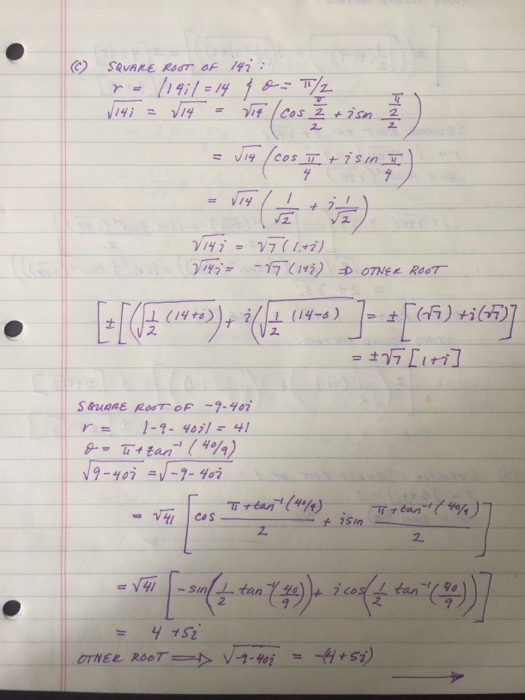 (C) SQUARE ROOT OF 14i :
r = |14i| = 14 & θ = π/2
√14i = √14 = √14 (cos (π/2)/2 + i sin (π/2)/2)
= √14 (cos π/4 + i sin π/4)
= √14 (1/√2 + i 1/√2)
√14i = √7 (1+i)
√14i = -√7 (1+i) ⇒ OTHER ROOT
[±[(√1/2 (14+0)) + i(√1/2 (14-0)] = ± [(√7) + i(√7)]
= ±√7 [1+i]
SQUARE ROOT OF -9-40i
r = |-9-40i| = 41
θ = π + tan⁻¹ (40/9)
√9-40i = √-9-40i
= √41 [cos (π + tan⁻¹(40/9))/2 + i sin (π + tan⁻¹(40/9))/2]
= √41 [-sin(1/2 tan⁻¹(40/9)) + i cos(1/2 tan⁻¹(40/9))]
= 4 +5i
OTHER ROOT ⇒ √-9-40i = -(4+5i)